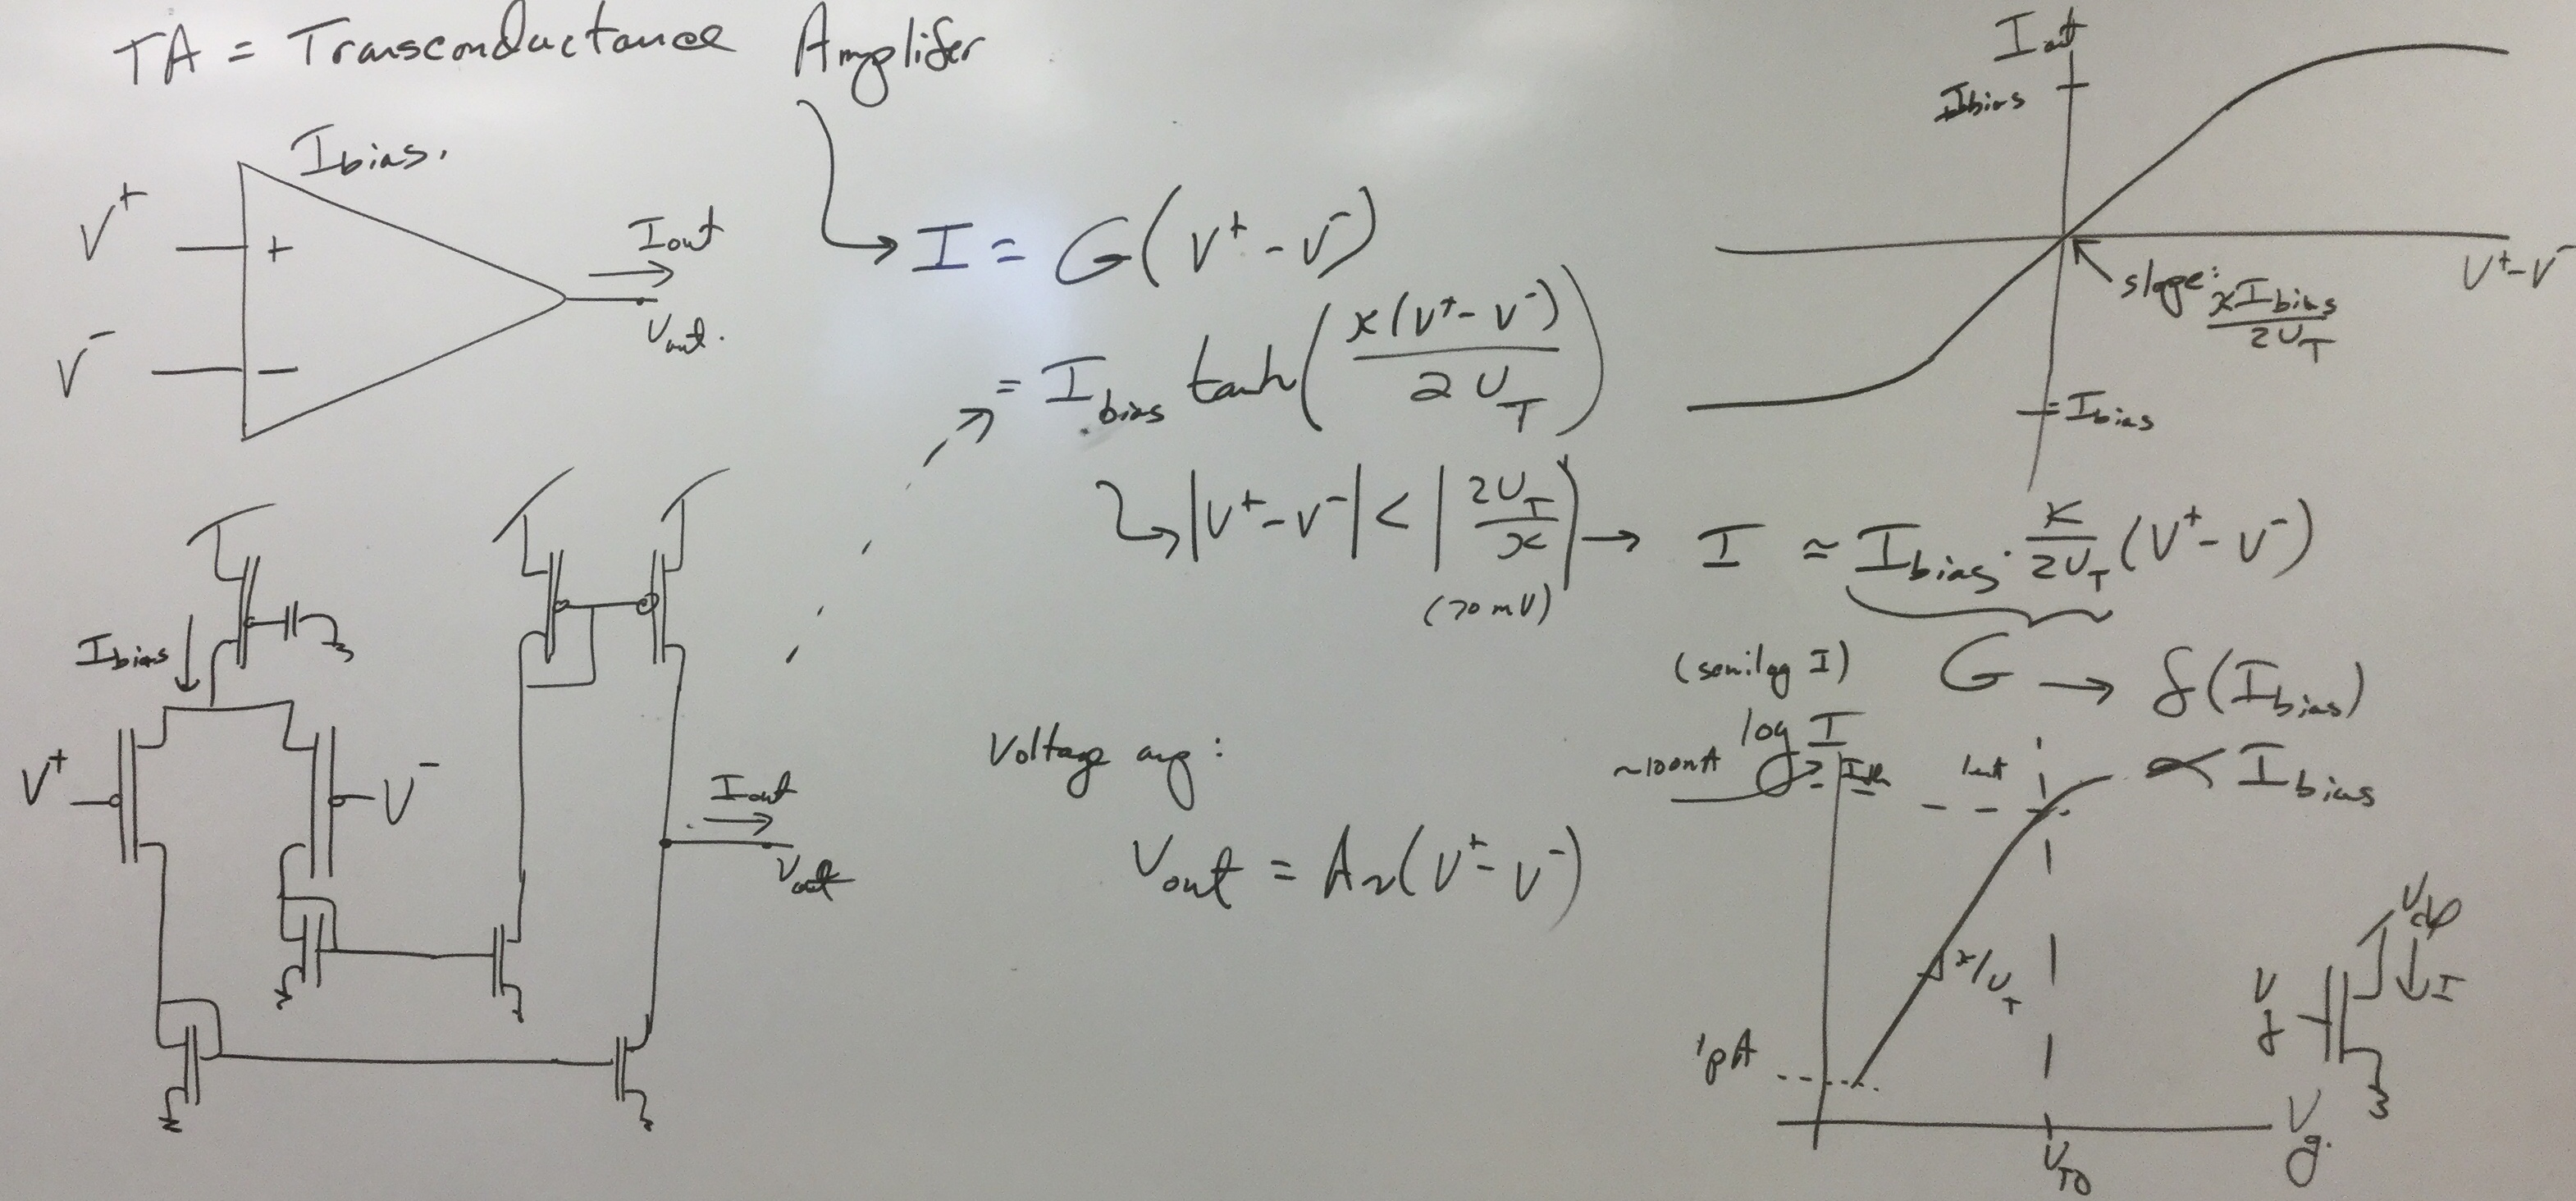 TA = Transconductance Amplifer
Ibias.
V⁺
+
Iout
Vout.
V⁻
−
I = G(V⁺ - V⁻)
= I_bias tanh(κ(V⁺ - V⁻) / 2U_T)
|V⁺ - V⁻| < |2U_T / κ| → I ≈ I_bias · κ/2U_T (V⁺ - V⁻)
(70mV)
G → f(I_bias)
∝ I_bias
Iout
Ibias
V⁺-V⁻
slope: κI_bias / 2U_T
-Ibias
Ibias
V⁺
V⁻
Iout
Vout
Voltage amp:
Vout = Av(V⁺ - V⁻)
(semilog I)
log I
~100nA
Ith
1pA
κ/U_T
V_T0
Vg.
Vdd
I
Vg